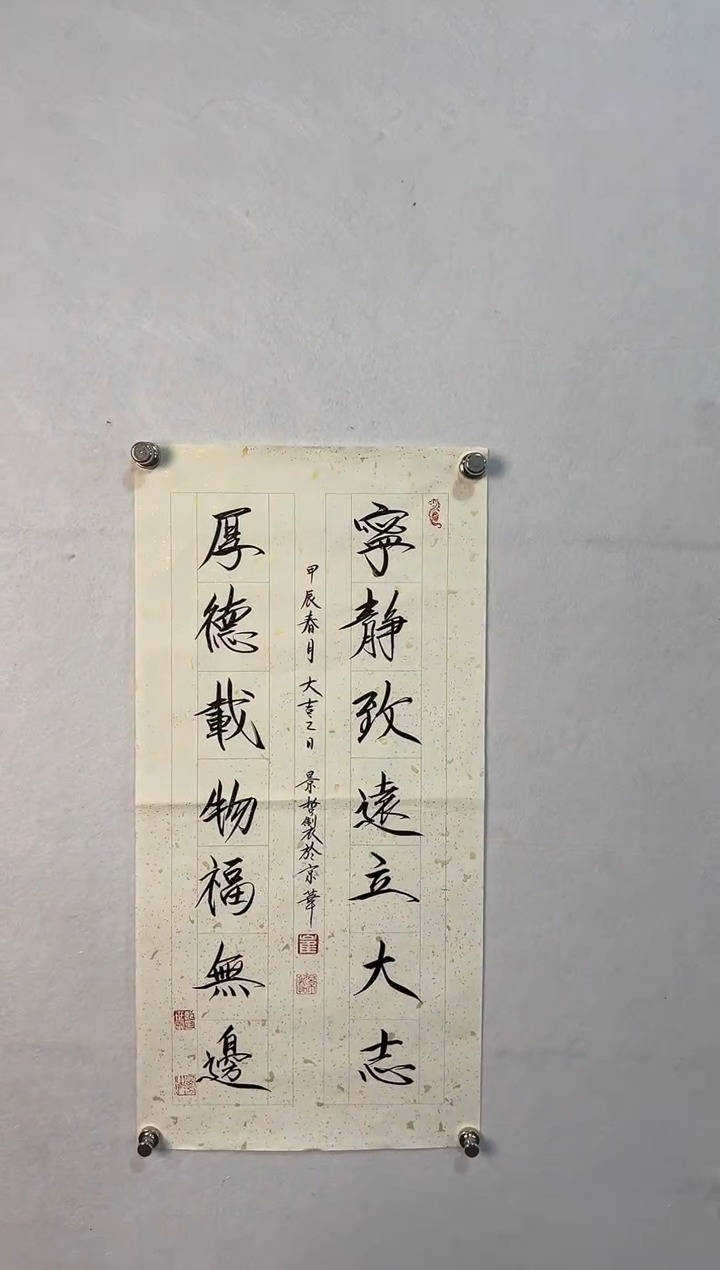 寧靜致遠立大志
甲辰春月 大吉之日 景哲製於京華
厚德載物福無邊